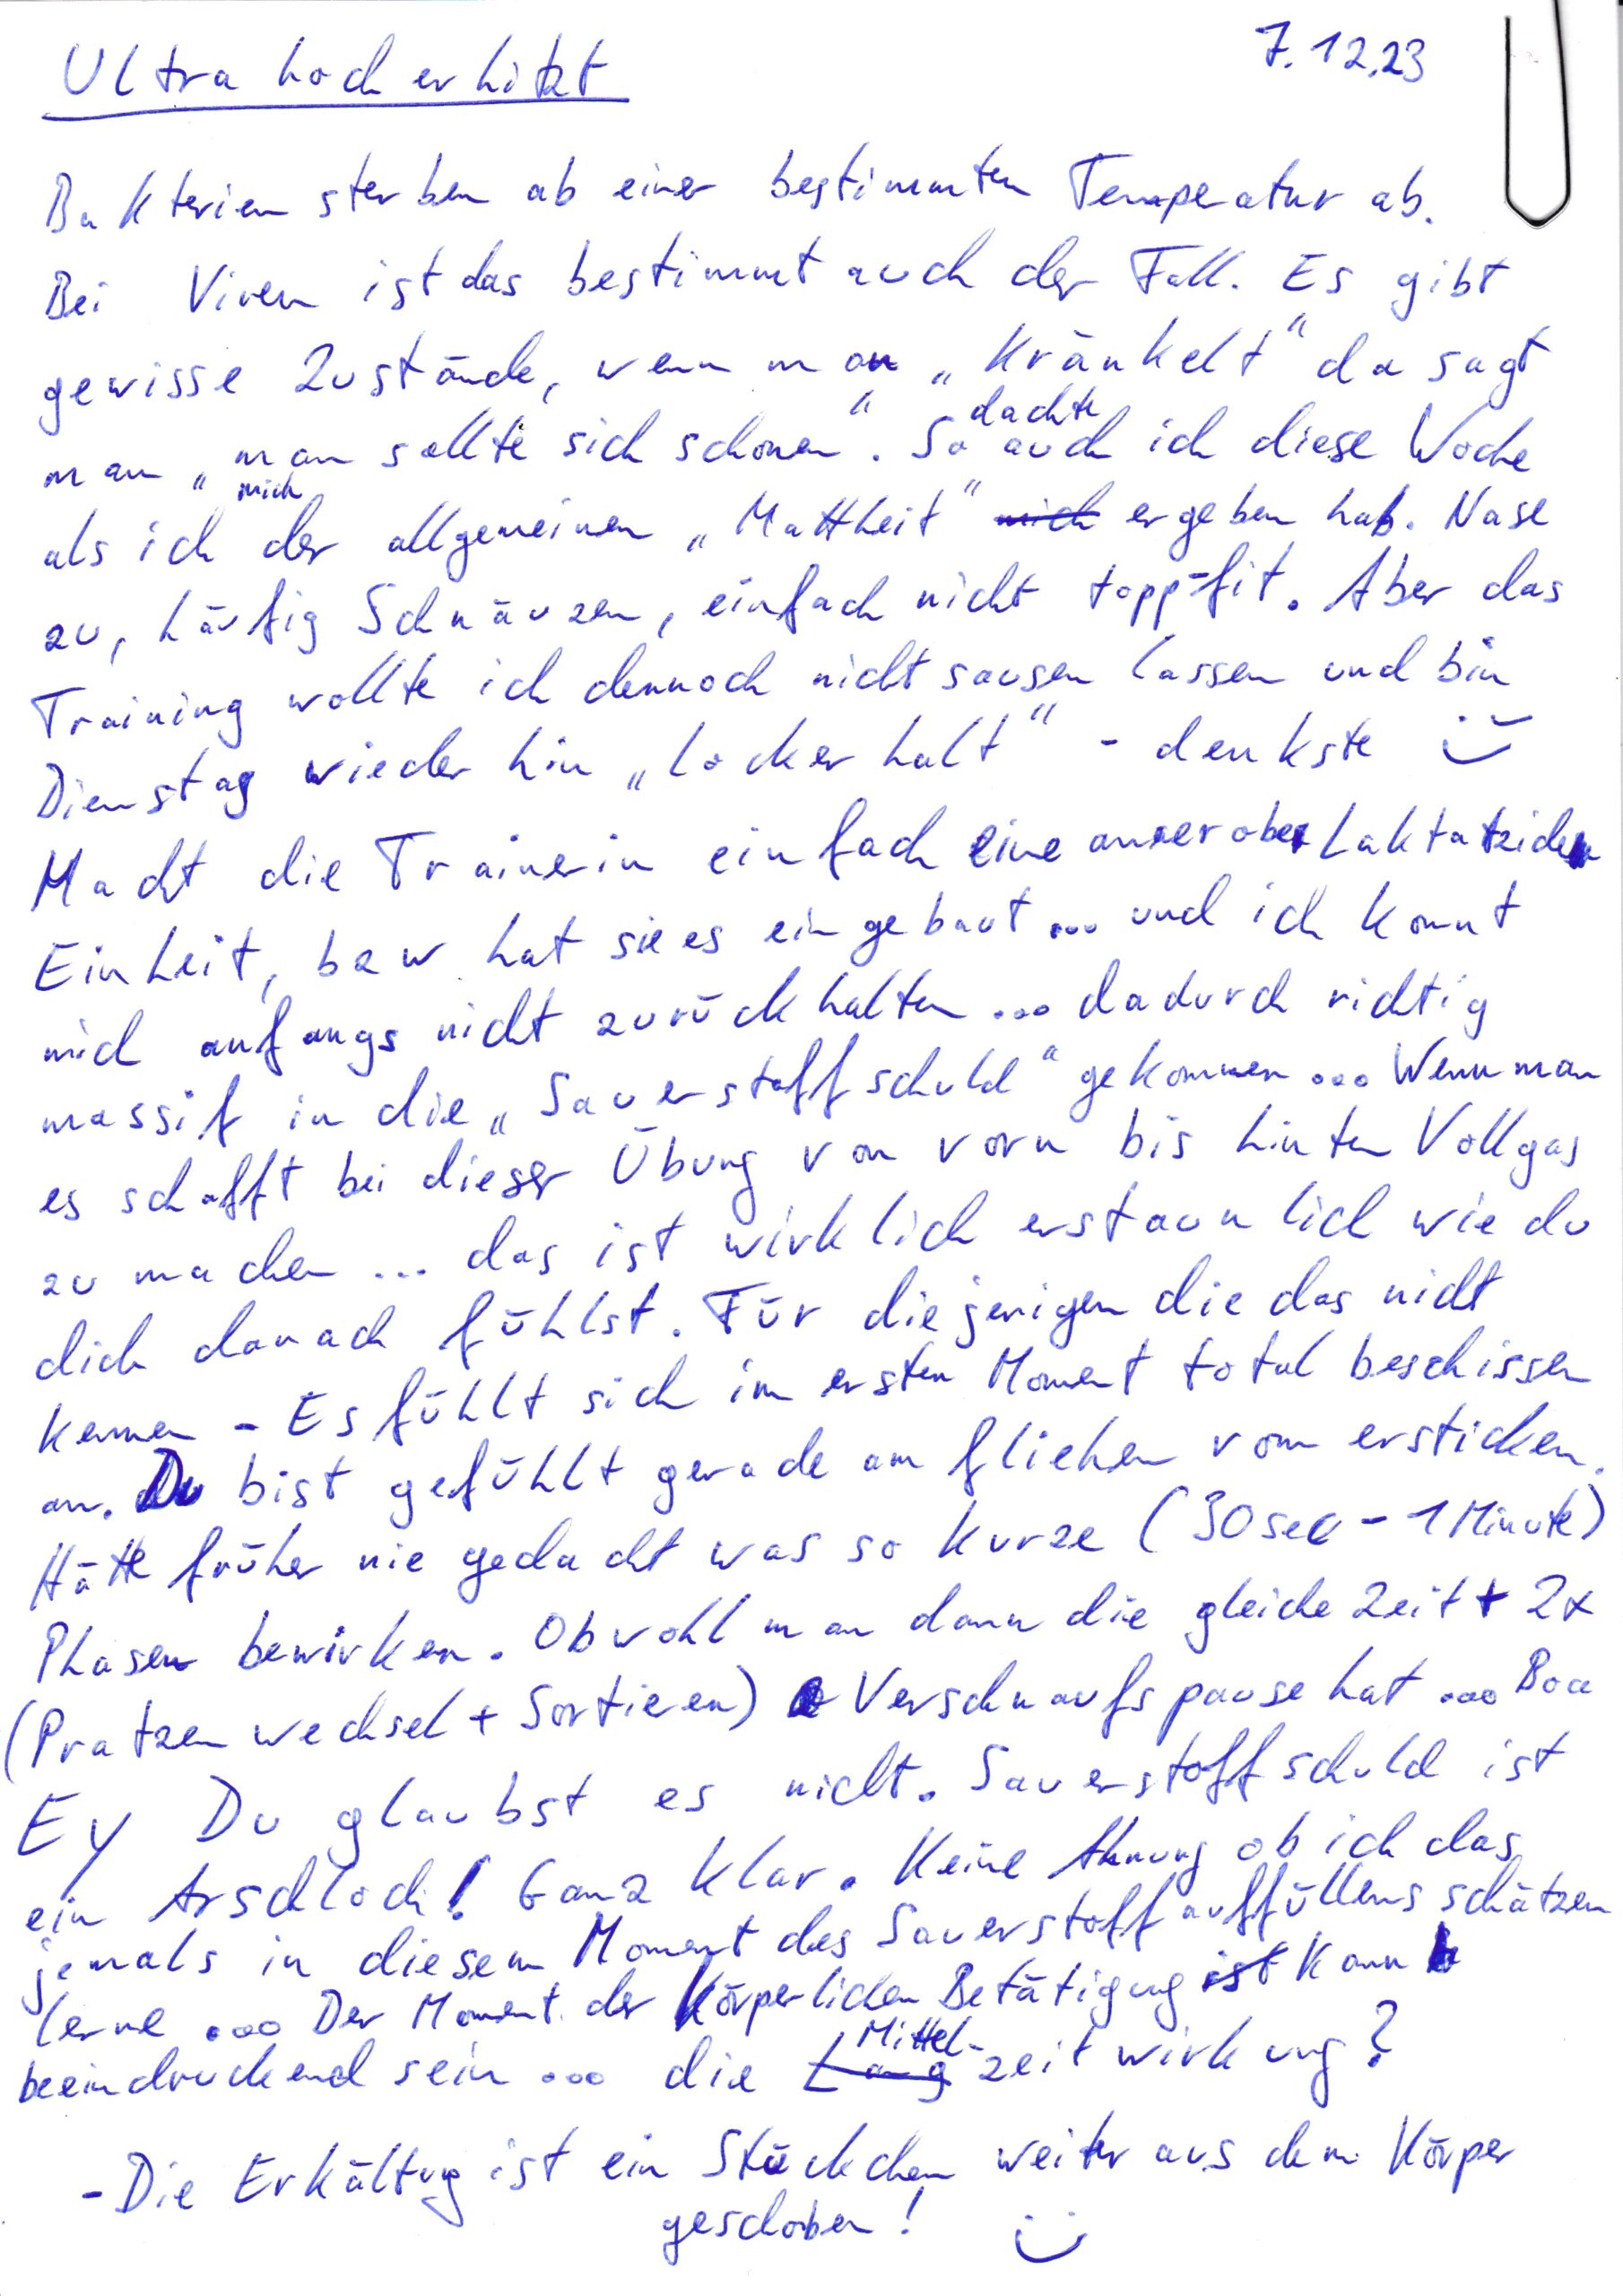 Ultra hoch erhitzt
7.12.23
Bakterien sterben ab einer bestimmten Temperatur ab.
Bei Viren ist das bestimmt auch der Fall. Es gibt
gewisse Zustände, wenn man „kränkelt" da sagt
man „man sollte sich schonen". So dachte auch ich diese Woche
als ich mich der allgemeinen „Mattheit" mich ergeben hab. Nase
zu, häufig Schnäuzen, einfach nicht topp-fit. Aber das
Training wollte ich dennoch nicht sausen lassen und bin
Dienstag wieder hin „locker halt" - denkste
Macht die Trainerin einfach eine
Einheit, bzw hat sie es eingebaut ... und ich konnt
mich anfangs nicht zurückhalten ... dadurch richtig
massif in die „Sauerstoffschuld" gekommen ... Wenn man
es schafft bei dieser Übung von vorn bis hinten Vollgas
zu machen ... das ist wirklich erstaunlich wie du
dich danach fühlst. Für diejenigen die das nicht
kennen - Es fühlt sich im ersten Moment total beschissen
an. Du bist gefühlt gerade am fliehen vom ersticken.
Hätte früher nie gedacht was so kurze (30sec - 1 Minute)
Phasen bewirken. Obwohl man dann die gleiche Zeit + 2x
(Pratzen wechsel + Sortieren) Verschnaufspause hat ... Boa
Ey Du glaubst es nicht. Sauerstoffschuld ist
ein Arschloch! Ganz klar. Keine Ahnung ob ich das
jemals in diesem Moment des Sauerstoffauffüllens schätzen
lerne ... Der Moment der Körperlichen Betätigung ist kann
beeindruckend sein ... die Lang Mittel-zeitwirkung?
- Die Erkältung ist ein Stückchen weiter aus dem Körper
geschoben!